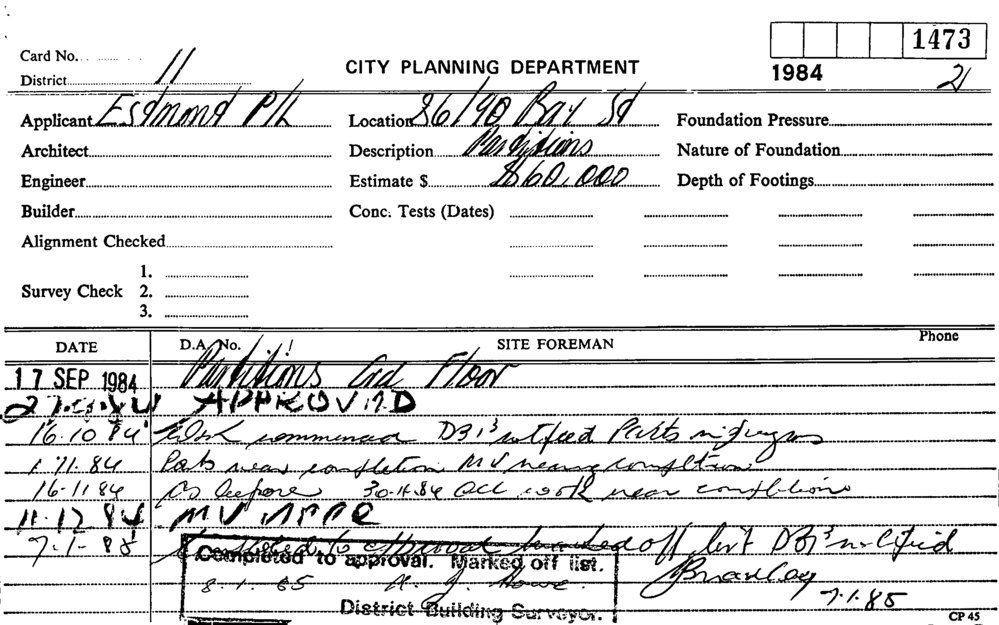 1473
Card No.
District 11
CITY PLANNING DEPARTMENT
1984
21
Applicant Esdmond P/L
Location 86/90 Bay St
Foundation Pressure
Architect
Description Partitions
Nature of Foundation
Engineer
Estimate $ $60,000
Depth of Footings
Builder
Conc. Tests (Dates)
Alignment Checked
Survey Check
1.
2.
3.
DATE
D.A. No.
SITE FOREMAN
Phone
17 SEP 1984 Partitions Floor
APPROVED
16.10.84 Work commenced DBI's Parts in
1.11.84 Parts near completion MV near completion
16.11.84 As before 30.11.84 All work near completion
11.12.84 MV
7.1.85 Completed to approval marked off list DBI's notified
Completed to approval. Marked off list.
8.1.85
Bradley
7.1.85
District Building Surveyor.
CP 45